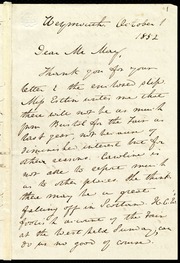 Weymouth October 1
1852
Dear Mr May,
Thank you for your
letter & the enclosed slip
Miss Estlin writes me that
there will not be as much
from Bristol for the Fair as
last year, not because of
diminished interest but for
other reasons. Caroline is
not able to report much
as to other places. She thinks
there may be a great
falling off in Scotland.
account of the
at the West held Sunday, can
do us no good of course.